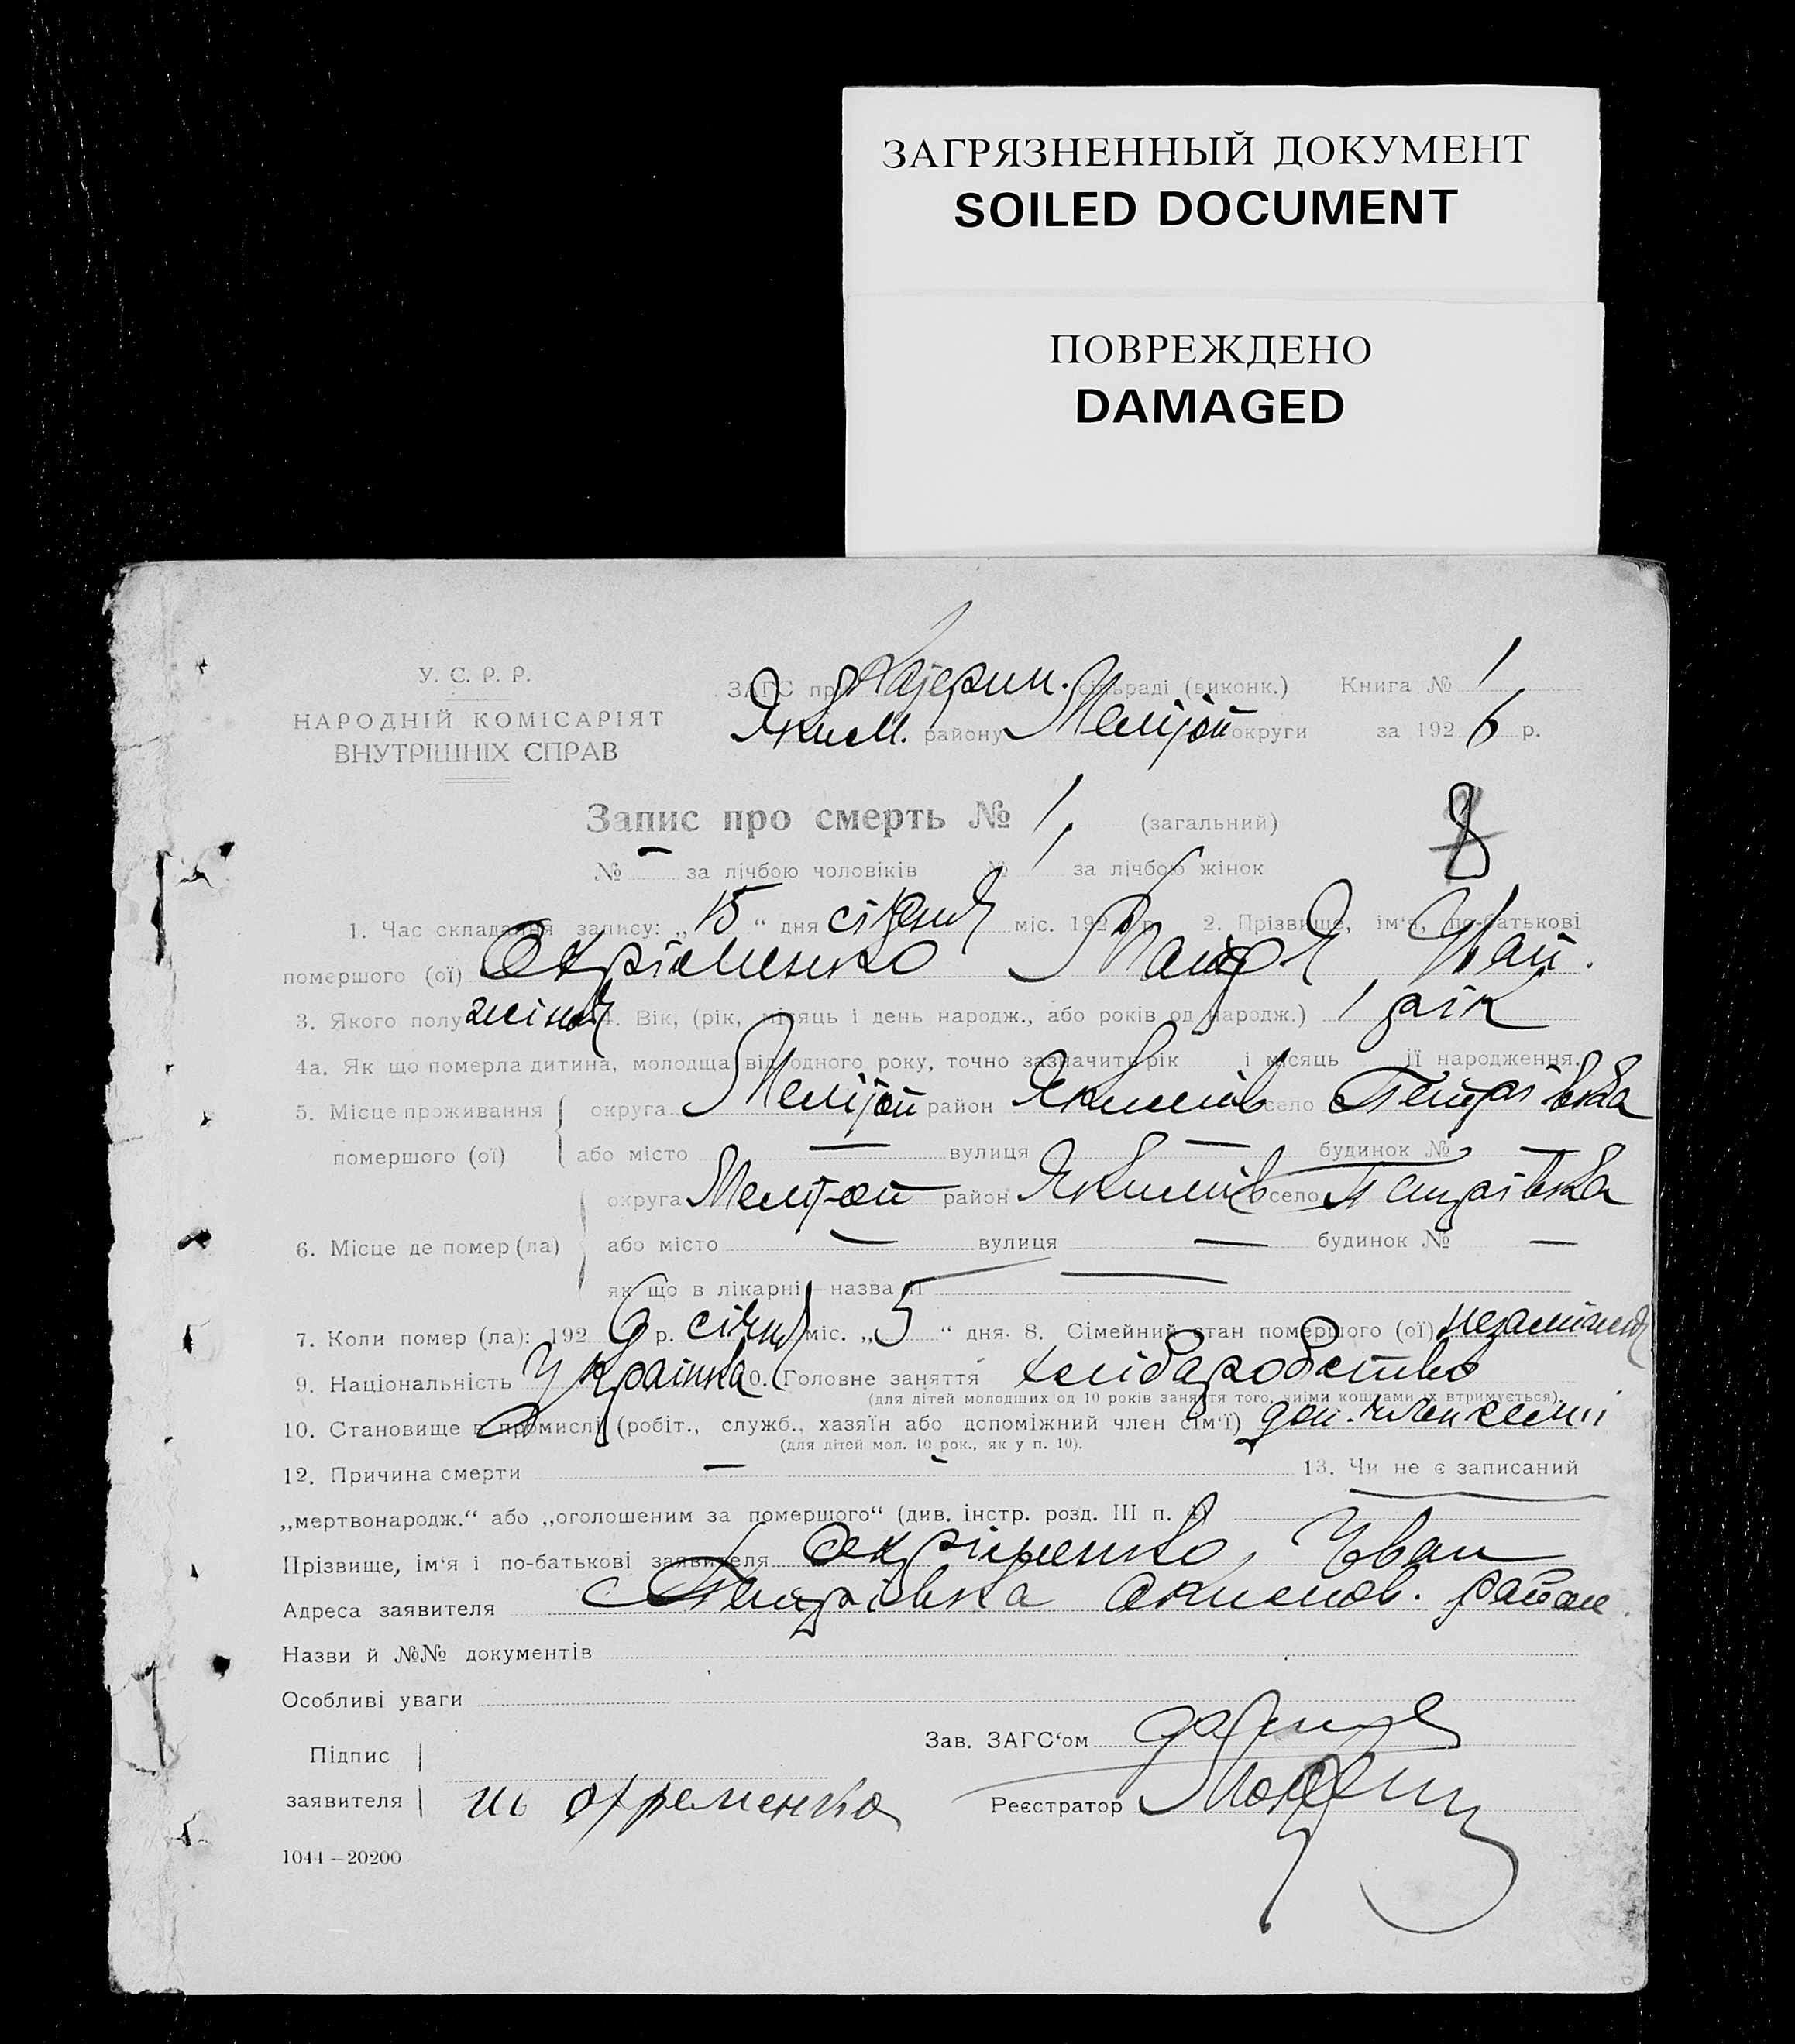 ЗАГРЯЗНЕННЫЙ ДОКУМЕНТ
SOILED DOCUMENT
ПОВРЕЖДЕНО
DAMAGED
У. С. Р. Р.
НАРОДНІЙ КОМІСАРІЯТ
ВНУТРІШНІХ СПРАВ
ЗАГС при Катерин. сільраді (виконк.) Книга № 1
Яким. району Мелітоп округи за 1926 р.
Запис про смерть № 1, (загальний)
8
№ — за лічбою чоловіків № 1 за лічбою жінок
1. Час складання запису: „15“ дня січня міс. 1926 р. 2. Прізвище, ім'я, по-батькові
помершого (ої) Охріменко Іван.
3. Якого полу жіноч 4. Вік, (рік, місяць і день народж., або років од народж.) 1 рік
4а. Як що померла дитина, молодша від одного року, точно зазначить рік і місяць її народження.
5. Місце проживання помершого (ої) округа Мелітоп район Якимів село Петрівка
або місто — вулиця — будинок № —
6. Місце де помер (ла) округа Меліт-оп район Якимів село Петрівка
або місто — вулиця — будинок № —
як що в лікарні—назва її —
7. Коли помер (ла): 1926 р. січня міс. „5“ дня. 8. Сімейний стан помершого (ої) незаміжня
9. Національність Українка 10. Головне заняття хліборобство
(для дітей молодших од 10 років заняття того, чиїми коштами їх втримується).
10. Становище в промислі (робіт., служб., хазяїн або допоміжний член сім'ї) доп. член семії
(для дітей мол. 10 рок., як у п. 10).
12. Причина смерти — 13. Чи не є записаний
„мертвонародж.“ або „оголошеним за помершого“ (див. інстр. розд. III п. 4)
Прізвище, ім'я і по-батькові заявителя Охріменко, Іван
Адреса заявителя с Петрівка Акимов. район.
Назви й №№ документів
Особливі уваги
Зав. ЗАГС'ом
Підпис заявителя Охременко
Реєстратор
1044—20200